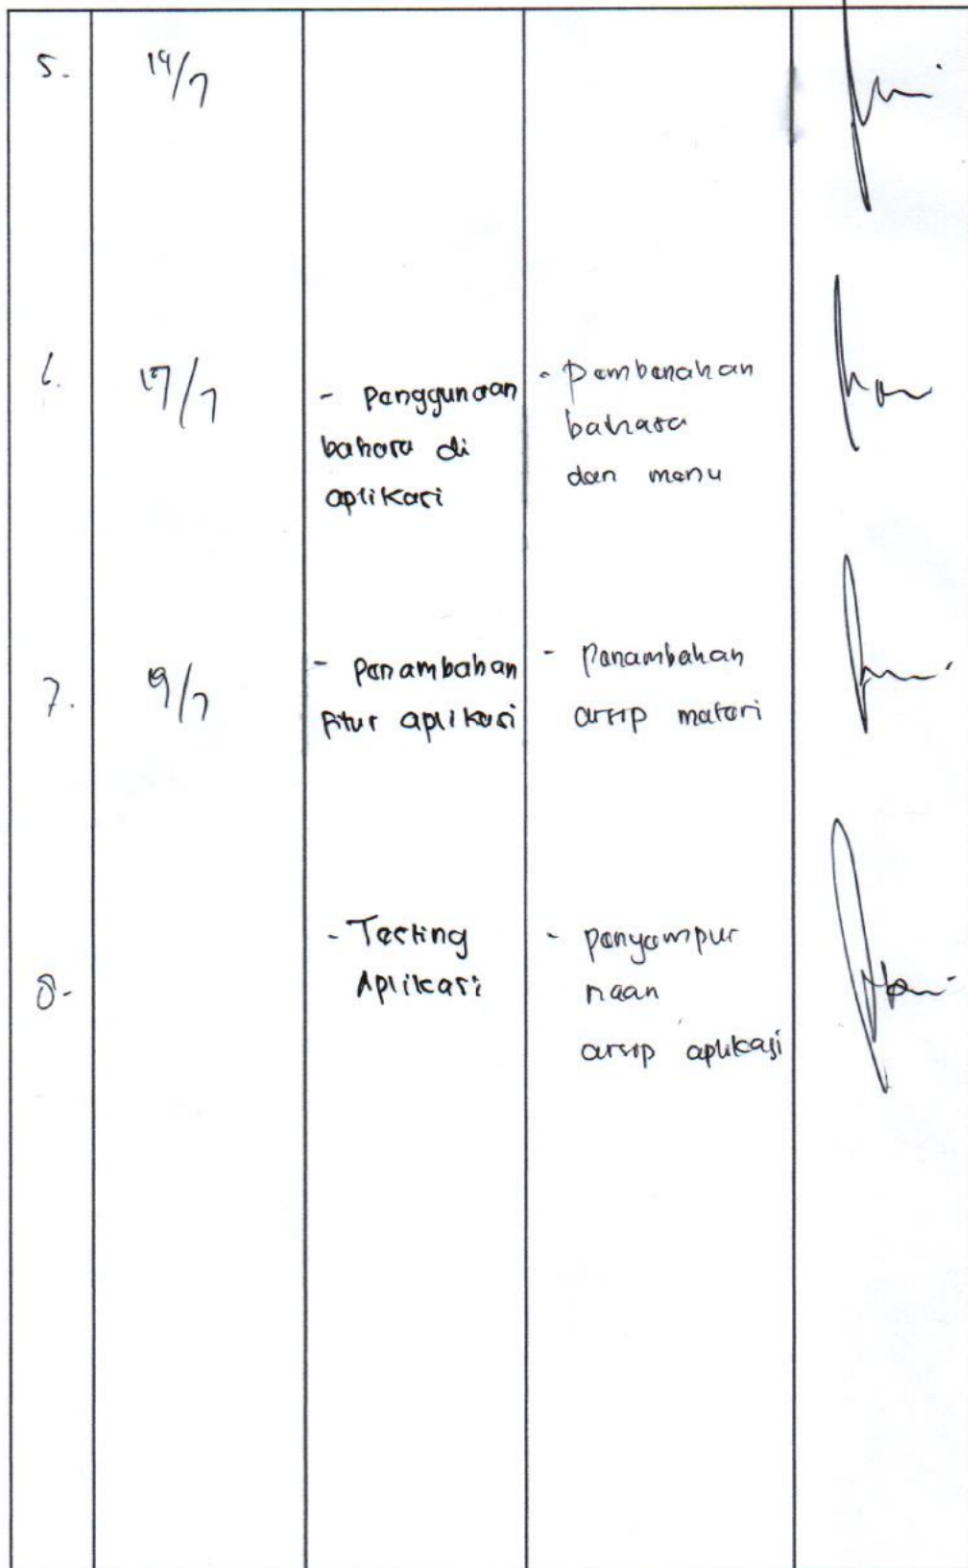 5.
14/7
6.
17/7
- Penggunaan
bahasa di
aplikasi
- Pembenahan
bahasa
dan menu
7.
9/7
- Penambahan
fitur aplikasi
- Penambahan
arsip materi
8.
- Testing
Aplikasi
- penyempur
naan
arsip aplikasi